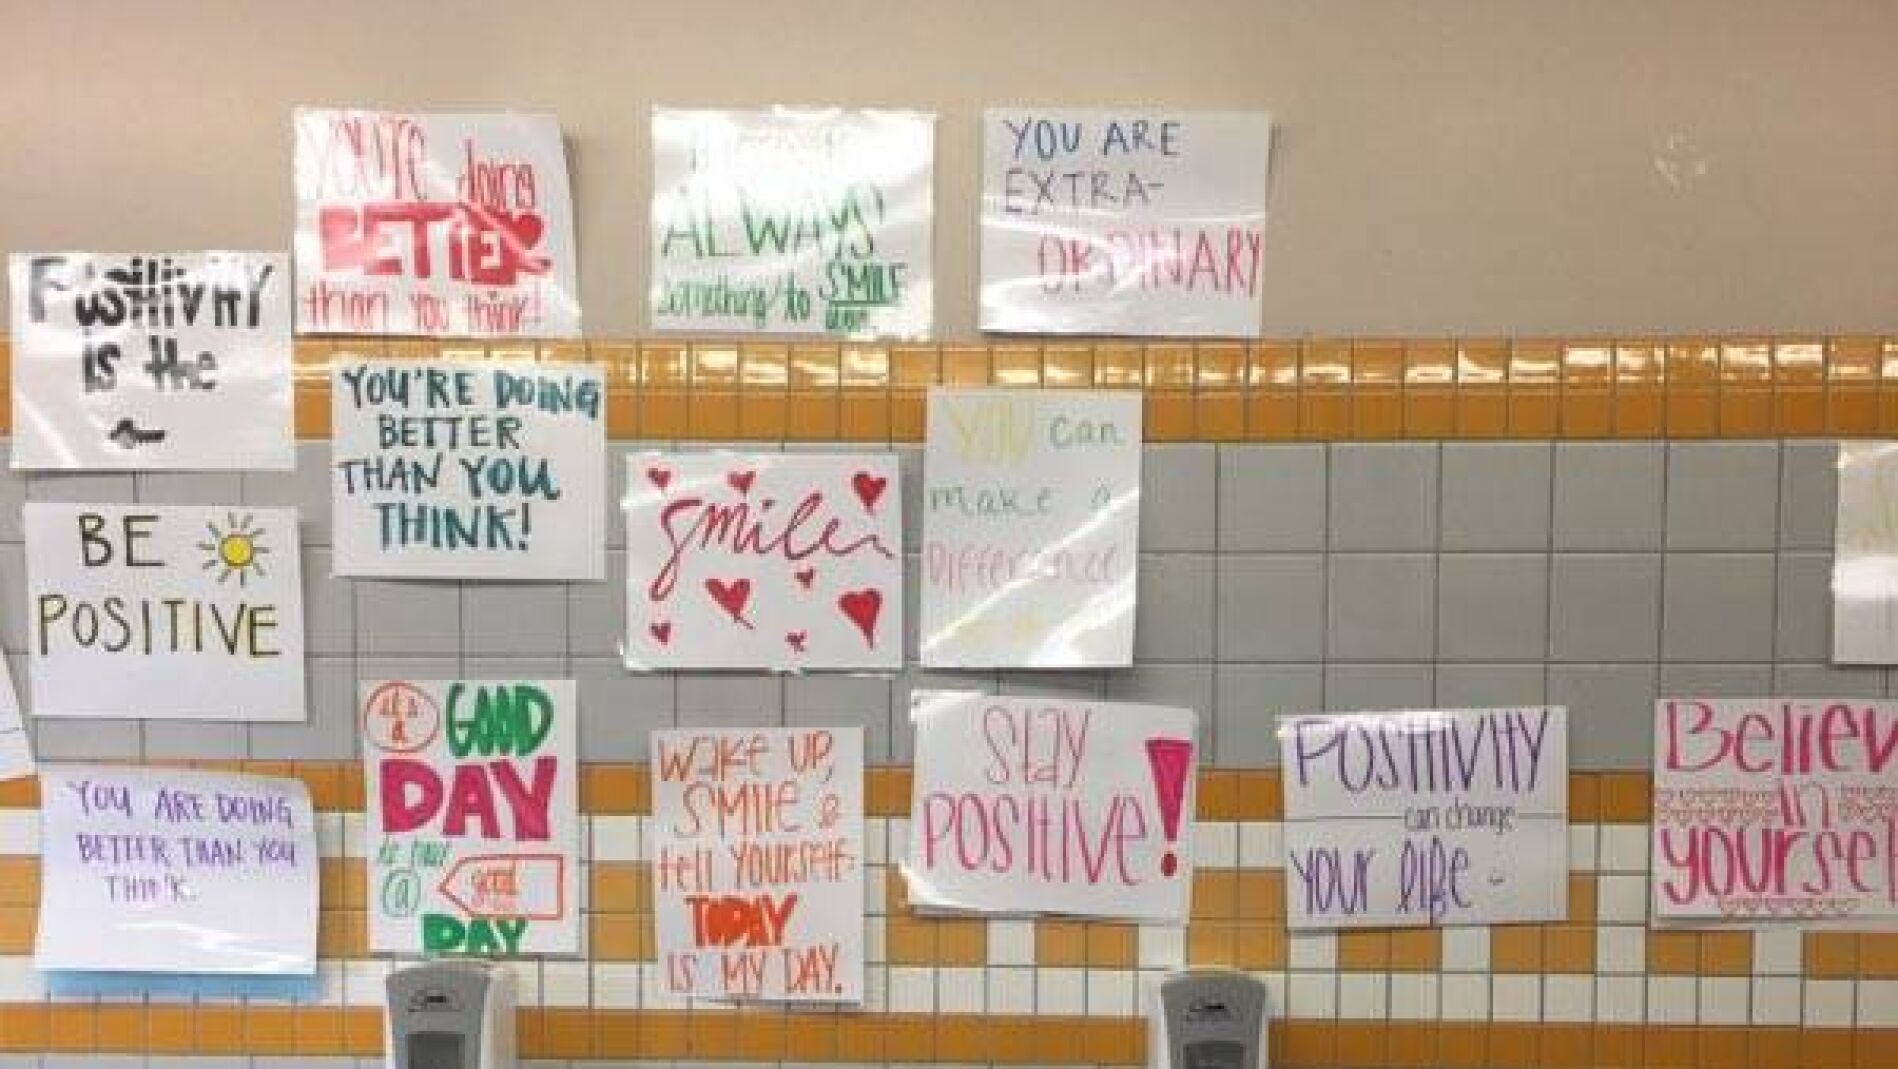 Positivity
is the
you're doing
BETTER
than you think!
ALWAYS
something to SMILE
YOU ARE
EXTRA-
ORDINARY
YOU'RE DOING
BETTER
THAN YOU
THINK!
smile
YOU can
make a
Difference
BE
POSITIVE
YOU ARE DOING
BETTER THAN YOU
THINK.
it's
a
GOOD
DAY
to have
a
good
DAY
WAKE UP,
SMILE &
tell YOURSELF:
TODAY
IS MY DAY.
Stay
POSITIVE!
POSITIVITY
can change
YOUR life
Believ
in
yoursel